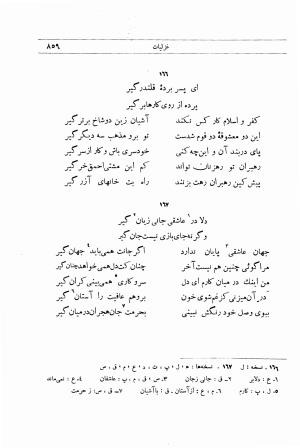 غزلیات
۸۵۹
۱۶۶
ای پسر بردهٔ قلندر گیر
پرده از روی کارها بر گیر
کفر و اسلام کار کس نکند
آشیان زین دو شاخ برتر گیر
این دو معشوقهٔ دو قوم شدست
تو برو مذهب سه دیگر گیر
پای دربند آن و این چه کنی
خودسری باش و کار از سر گیر
رهبران تو رهزنان تواند
کم این مشتی احمق خر گیر
پیش کین رهبران رهت بزنند
راه بت خانهای آزر گیر
۱۶۷
دلا در عاشقی جانی زیان گیر
و گرنه جای بازی نیست جان گیر
جهان عاشقی پایان ندارد
اگر جانت همی باید جهان گیر
مرا گوئی چنین هم نیست آخر
چنان کت دل همی خواهد چنان گیر
من اینك در میان کارم ای دل
سر و کاری همی بینی کران گیر
در آن میزنی کز غم شوی خون
برو هم عافیت را آستان گیر
ببوی وصل خود رنگش نبینی
بحرمت جان هجران در میان گیر
۱۶۶. نسخه: ل ۱۶۷. نسخه‌ها:
۱. ع: دلابر ۲. ق: جانی زجان